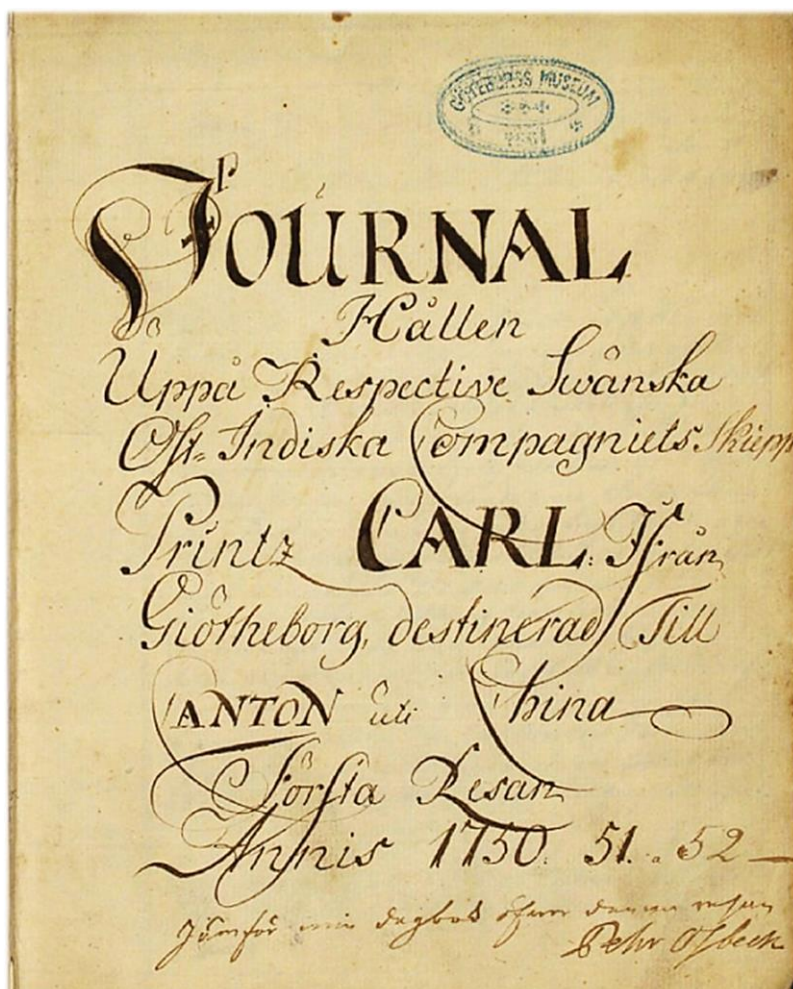 GÖTEBORGS MUSEUM
JOURNAL
Hållen
Uppå Respective Swånska
Ost-Indiska Compagniets Skiepp
Printz CARL. Ifrån
Giötheborg, destinerad Till
CANTON uti China
Första Resan
Annis 1750. 51. . 52 —
Jämför min dagbok öfwer denna resan
Pehr Osbeck